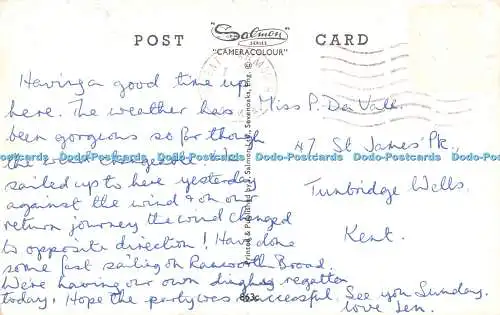 POST CARD
"Salmon SERIES
"CAMERACOLOUR"
Having a good time up
here. The weather has
been gorgeous so far though
the wind
sailed up to here yesterday
against the wind & on our
return journey the wind changed
to opposite direction! Have done
some fast sailing on Ranworth Broad.
We're having our own dinghy regatta
today. Hope the party was successful. See you Sunday.
love Jen.
Miss P. Da Valle
47 St James' Pk.,
Tunbridge Wells.
Kent.
Printed & Published by J. Salmon Ltd., Sevenoaks, Eng. ©
863c
Dodo-Postcards Dodo-Postcards Dodo-Postcards Dodo-Postcards Dodo-Postcards